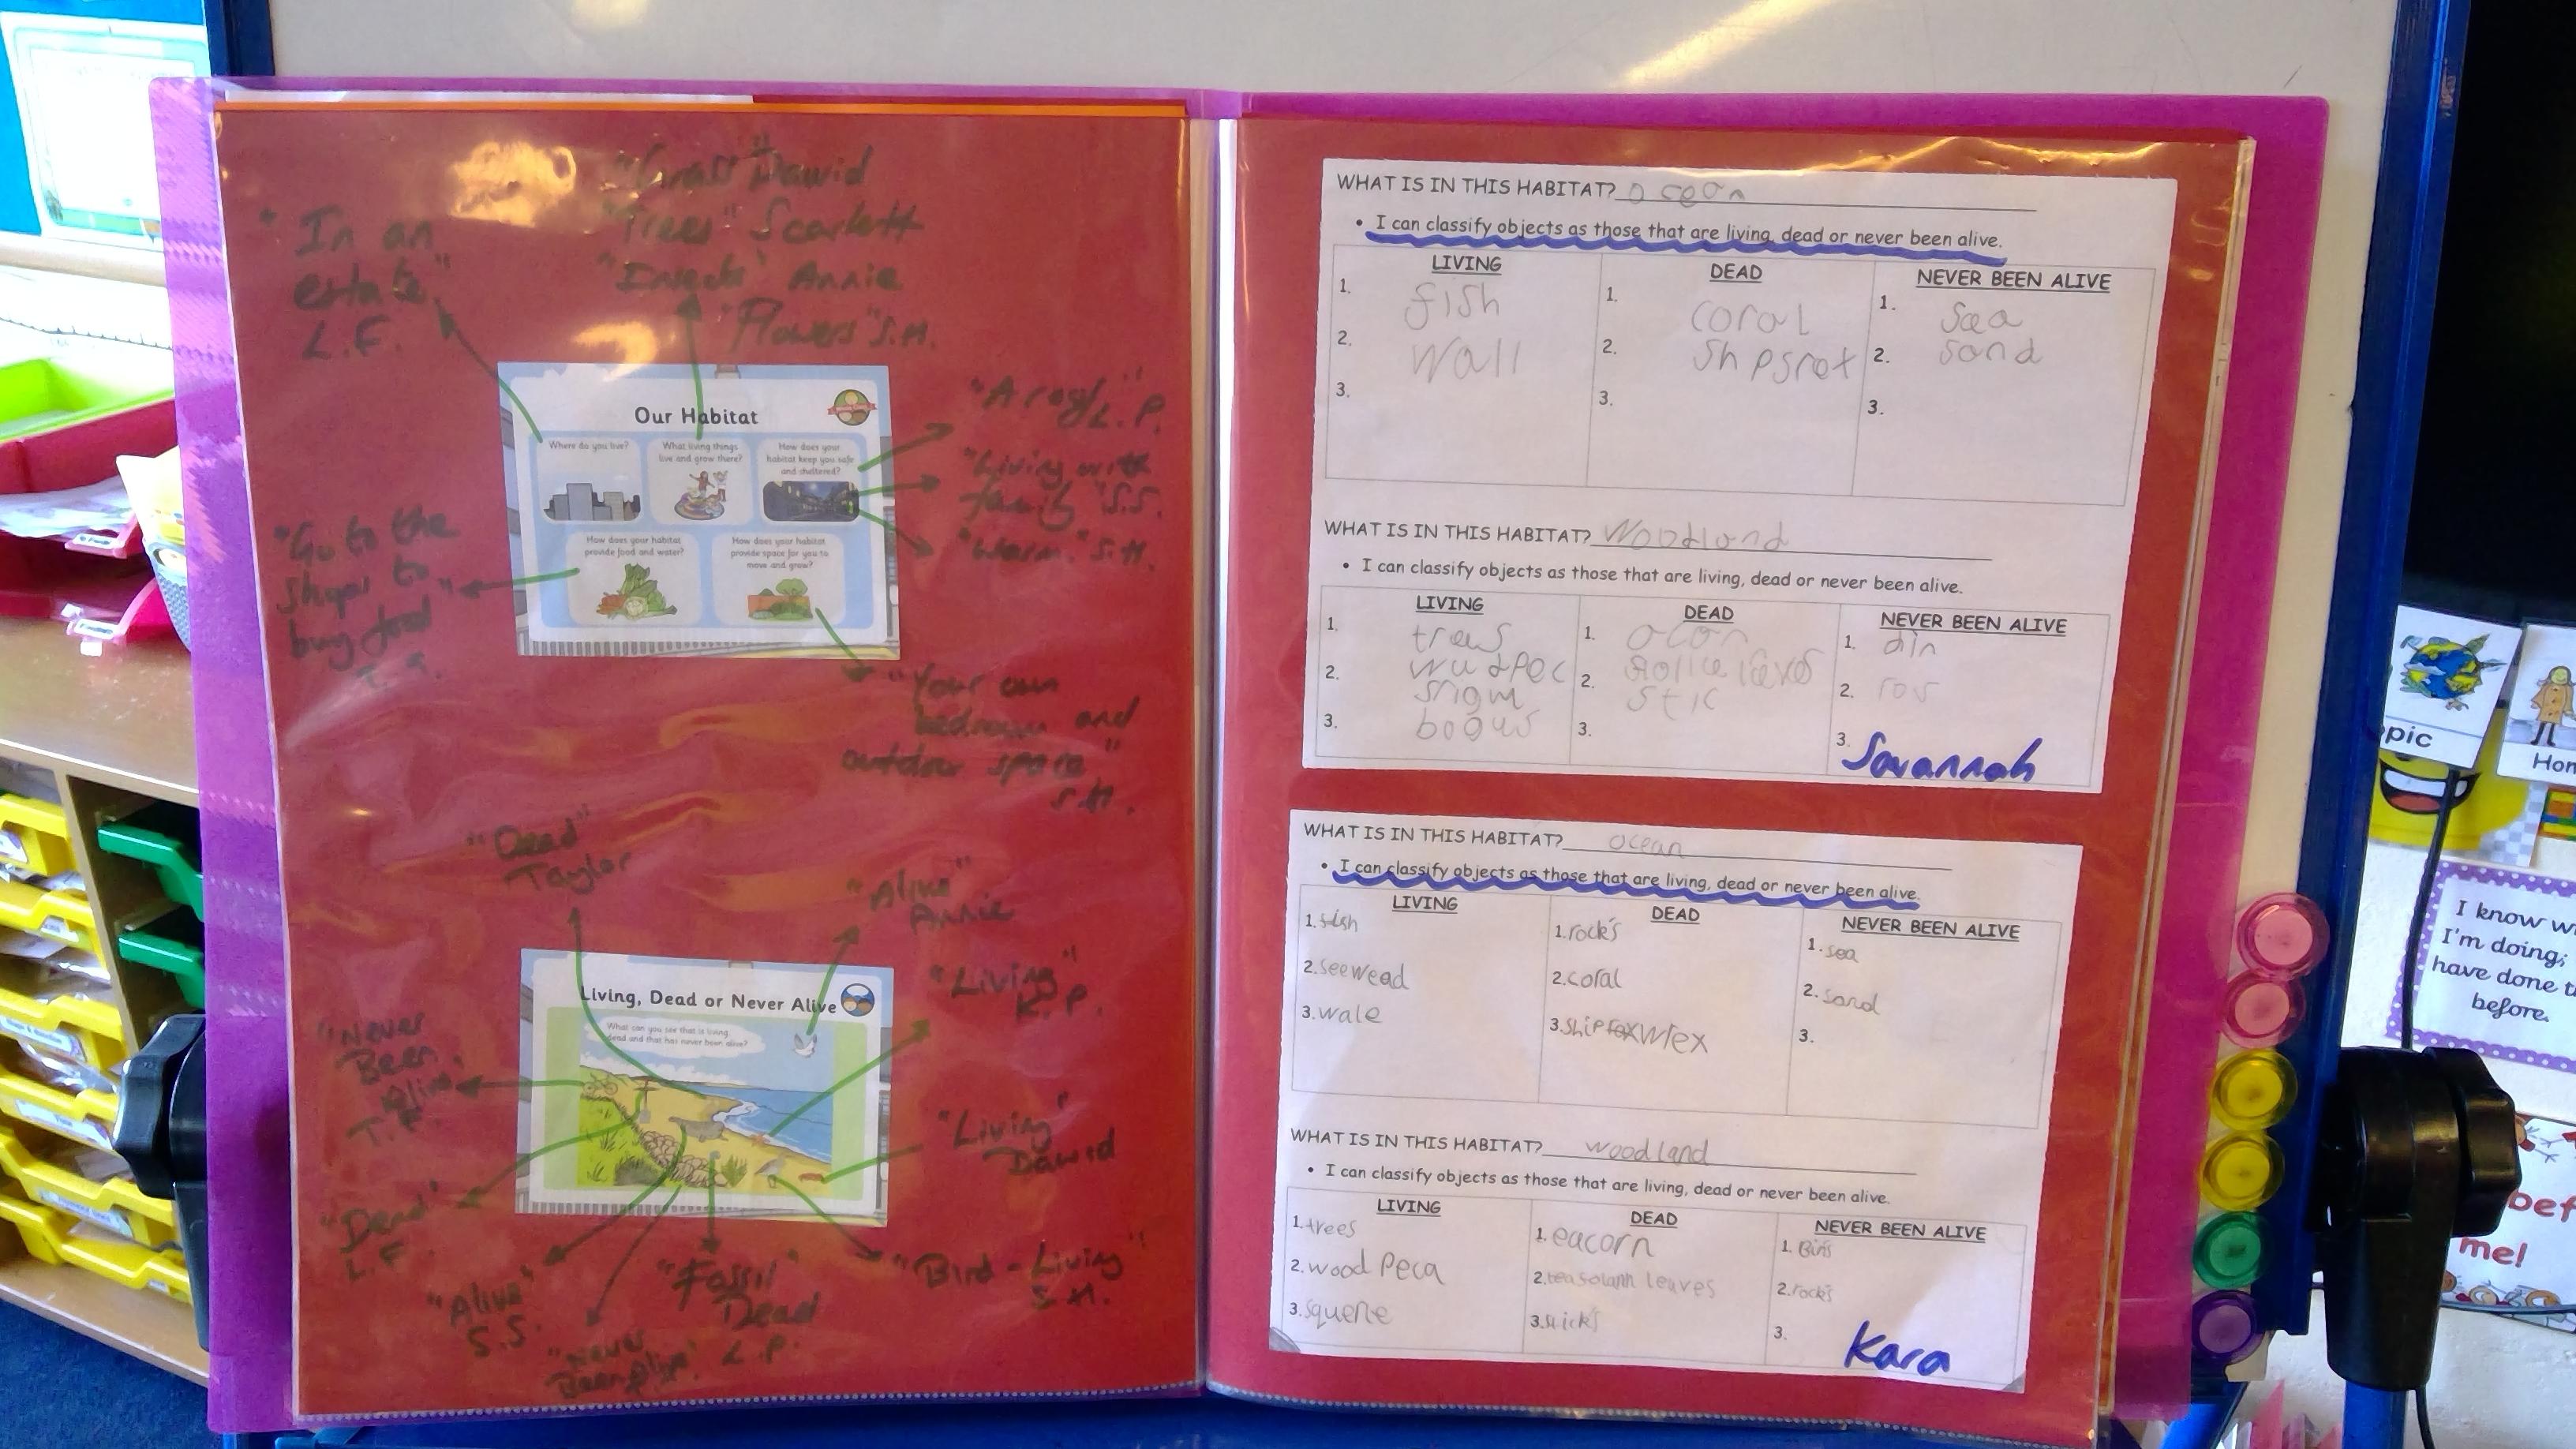 "Grass" Dawid
"Trees" Scarlett
"Insects" Annie
"Flowers" S.H.
"In an
estate"
L.F.
Our Habitat
Where do you live?
What living things
live and grow there?
How does your
habitat keep you safe
and sheltered?
How does your habitat
provide food and water?
How does your habitat
provide space for you to
move and grow?
"A roof" L.P.
"Living with
family" S.S.
"Warm." S.H.
"Go to the
shops to
buy food"
"Your own
bedroom and
outdoor space"
S.H.
"Dead"
Taylor
"Alive"
Annie
"Living"
K.P.
Living, Dead or Never Alive
What can you see that is living,
dead and that has never been alive?
"Never
Been
Alive
T.F.
"Living"
Dawid
"Dead"
L.F.
"Alive"
S.S.
"Never
Been Alive"
"Fossil"
Dead
L.P.
"Bird - Living"
S.H.
WHAT IS IN THIS HABITAT? ocean
• I can classify objects as those that are living, dead or never been alive.
LIVING
1. fish
2. wall
3.
DEAD
1. coral
2. shpsret
3.
NEVER BEEN ALIVE
1. sea
2. sand
3.
WHAT IS IN THIS HABITAT? Woodland
• I can classify objects as those that are living, dead or never been alive.
LIVING
1. trees
2. wudpec
3.
DEAD
1. acorn
2. leaves
stic
3.
NEVER BEEN ALIVE
1.
2.
3.
Savannah
WHAT IS IN THIS HABITAT? ocean
• I can classify objects as those that are living, dead or never been alive.
LIVING
1. fish
2. seewead
3. wale
DEAD
1. rock's
2. coral
3. ship wrex
NEVER BEEN ALIVE
1. sea
2. sand
3.
WHAT IS IN THIS HABITAT? woodland
• I can classify objects as those that are living, dead or never been alive.
LIVING
1. trees
2. wood peca
3. squerle
DEAD
1. eacorn
2. leaves
3. stick's
NEVER BEEN ALIVE
1. Bin's
2. rock's
3.
Kara
pic
Hom
I know w
I'm doing;
have done t
before.
bef
me!